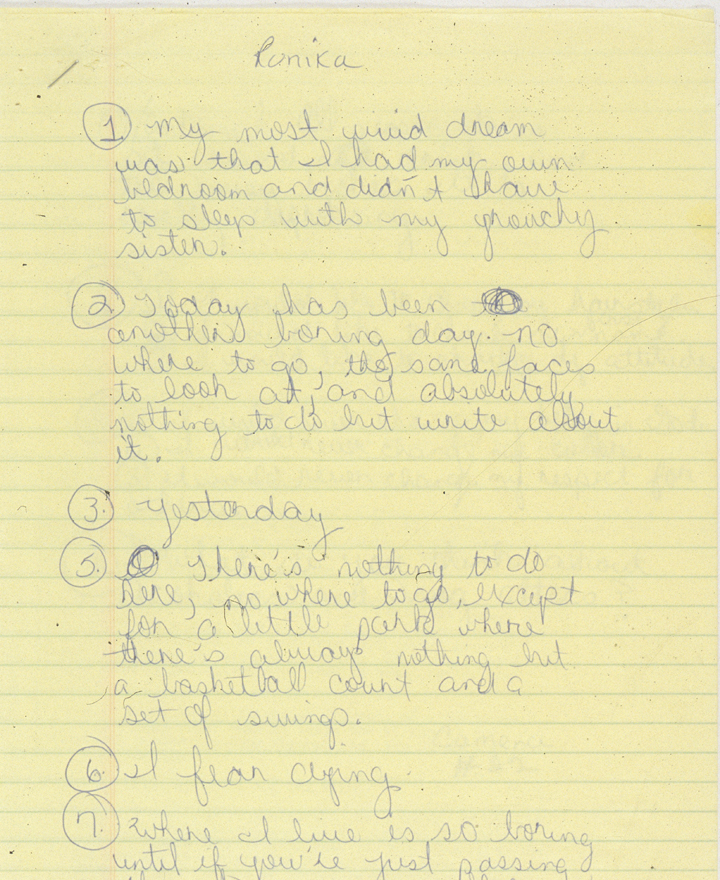 Ronika
1. My most vivid dream
was that I had my own
bedroom and didn't have
to sleep with my grouchy
sister.
2. Today has been
another boring day. no
where to go, the same faces
to look at, and absolutely
nothing to do but write about
it.
3. Yesterday
5. There's nothing to do
here, no where to go, except
for a little park where
there's always nothing but
a basketball court and a
set of swings.
6. I fear dying
7. Where I live is so boring
until if you're just passing